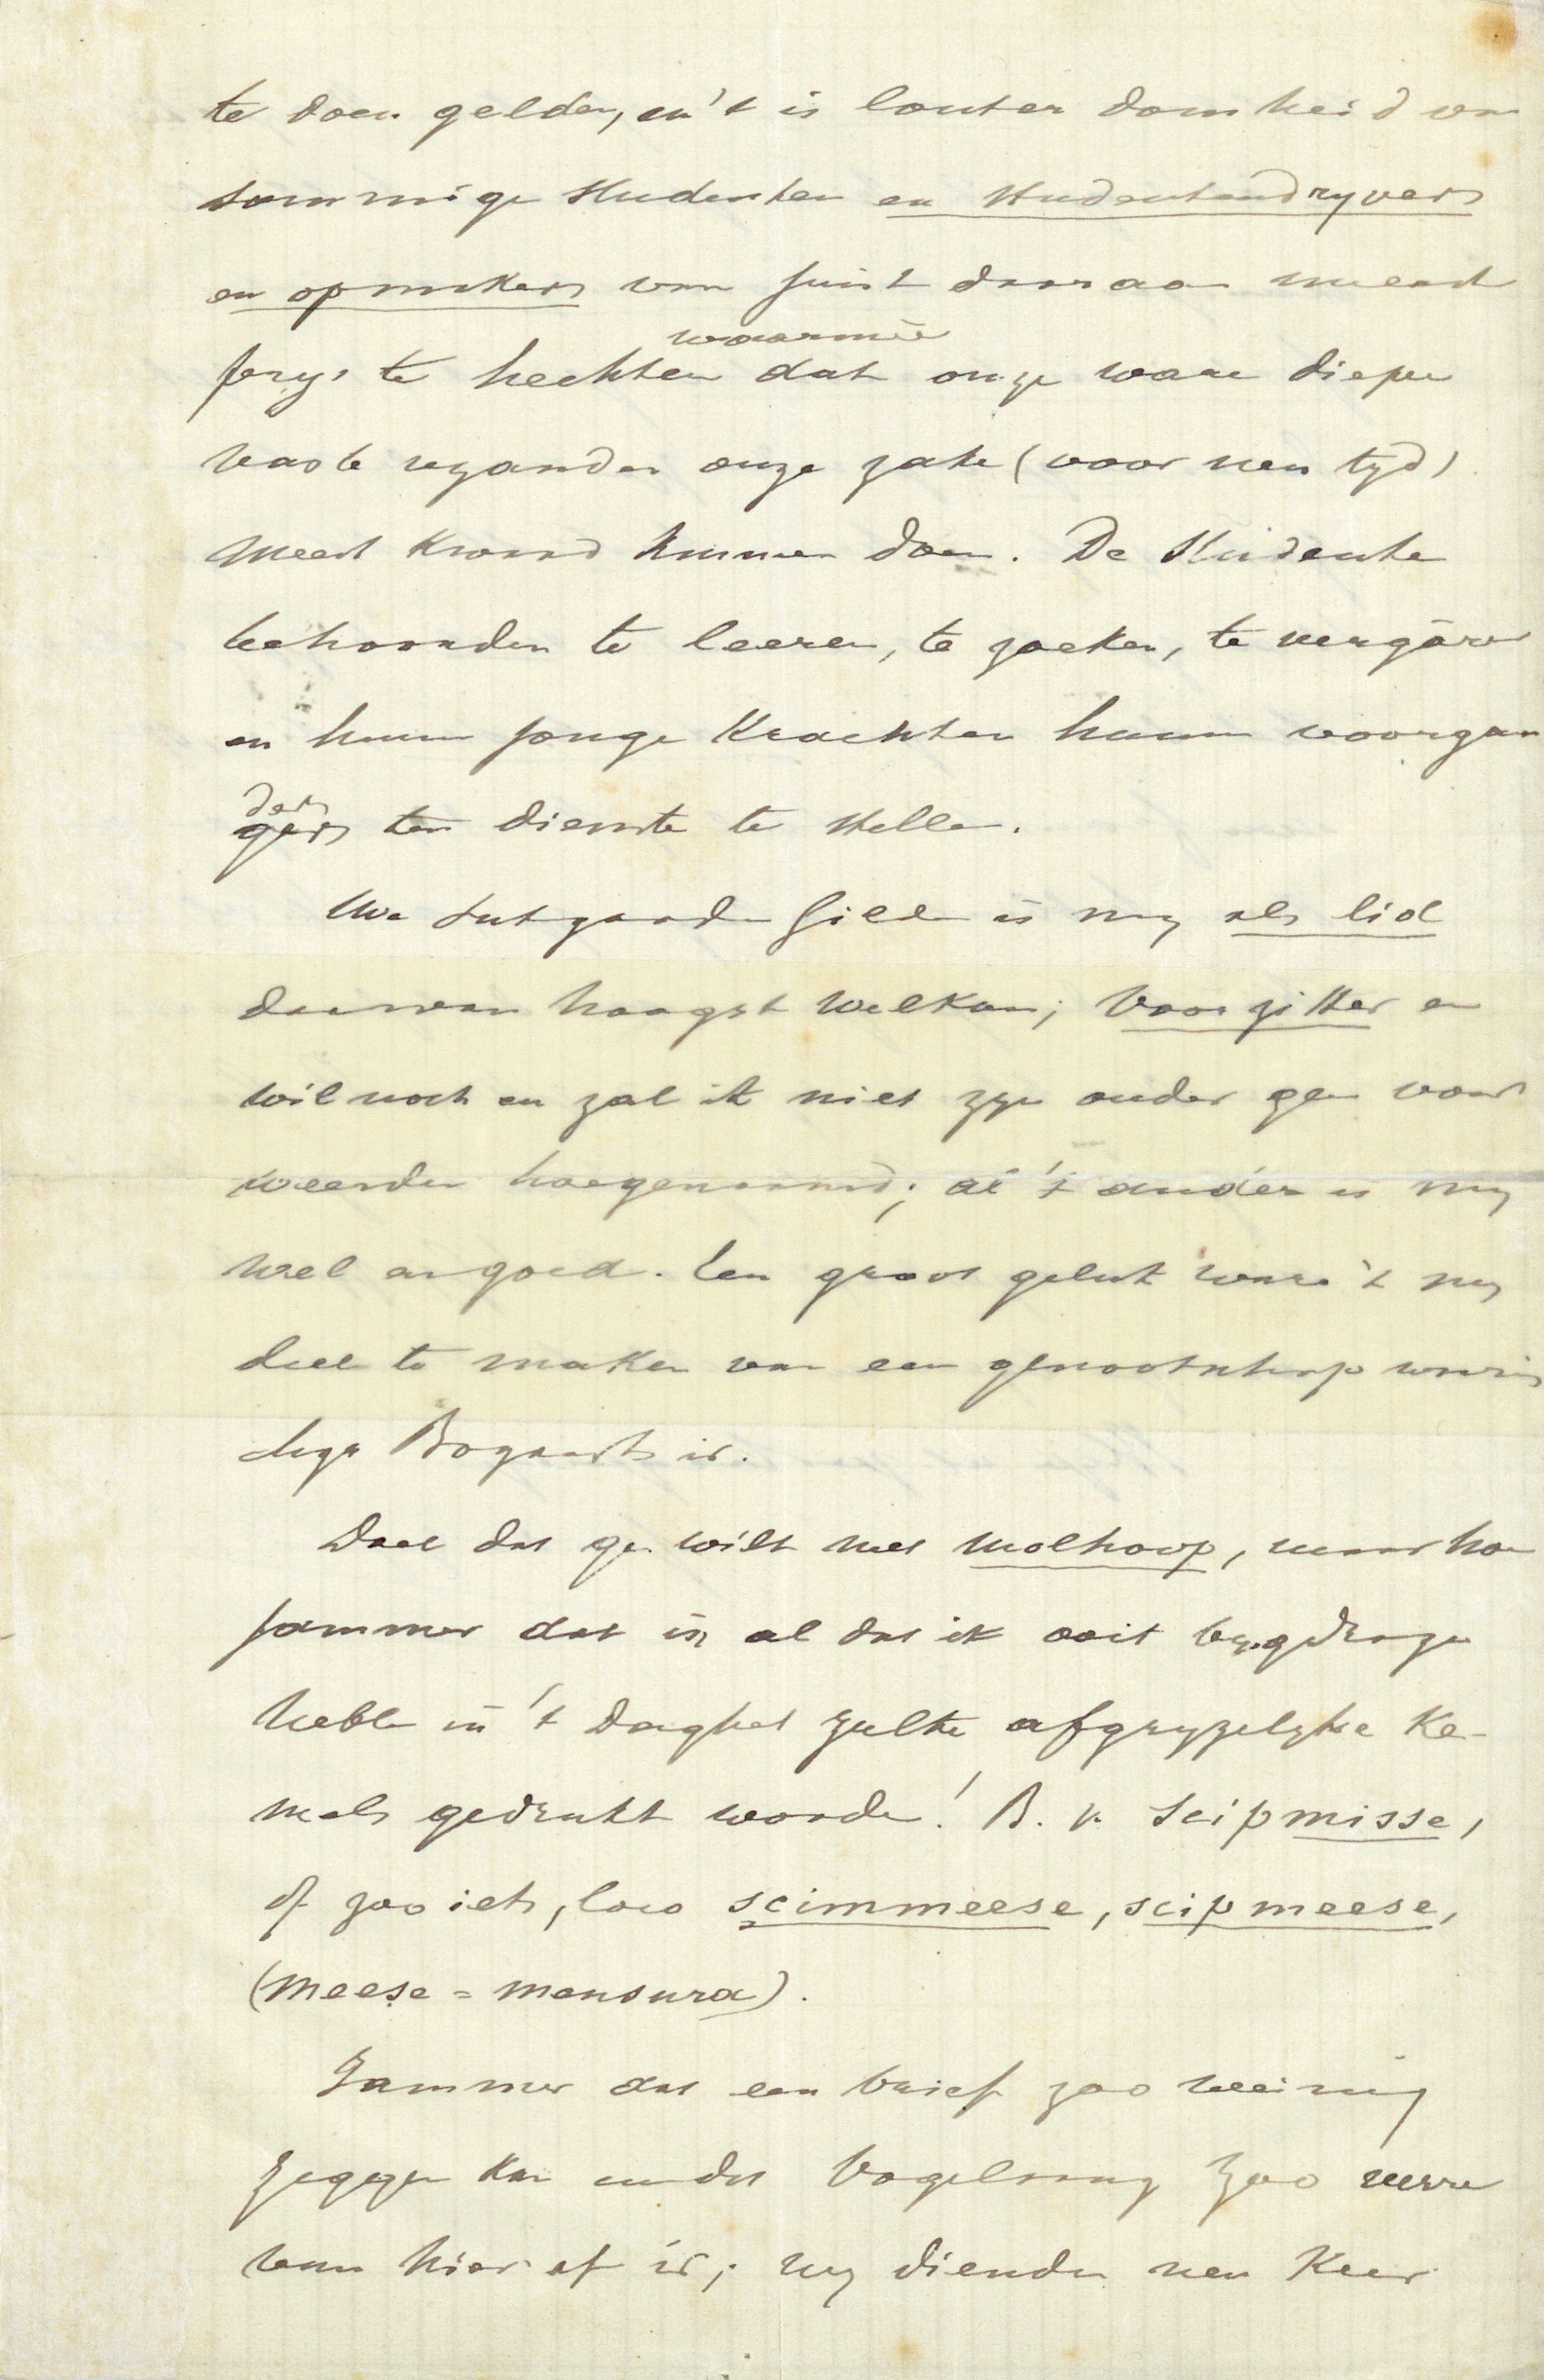 te doen gelden, en 't is louter domheid van
sommige studenten en studentendryvers
en opmakers van juist daaraan meest
waarmeê
prys te hechten dat onze ware diepe
vaste vyanden onze zake (voor nen tyd)
meest kwaad kunnen doen. De studenten
behoorden te leeren, te zoeken, te vergâren
en hunne jonge krachten hunne voorgan
ders
gers ten dienste te stellen.
Uwe Gilde is my als lid
daervan hoogst welkom; Voorzitter en
wil noch en zal ik niet zyn onder geen voor
weerden hoegenaamd; al 't ander is my
wel en goed. Een groot geluk ware 't my
deel te maken van een genootschap waarin
Mgr Bogaerts is.
Doet dat ge wilt met molhoop, maar hoe
jammer dat in al dat ik ooit bygedragen
hebbe in 't Daghet zulke afgryzelyke ke-
mels gedrukt worden! B. v. scipmisse,
of zoo iets, loco scimmeese, scipmeese,
(meese = mensura).
Jammer dat een brief zoo weinig
zeggen kan en dat Vogelsang zoo verre
van hier af is; wy dienden nen keer